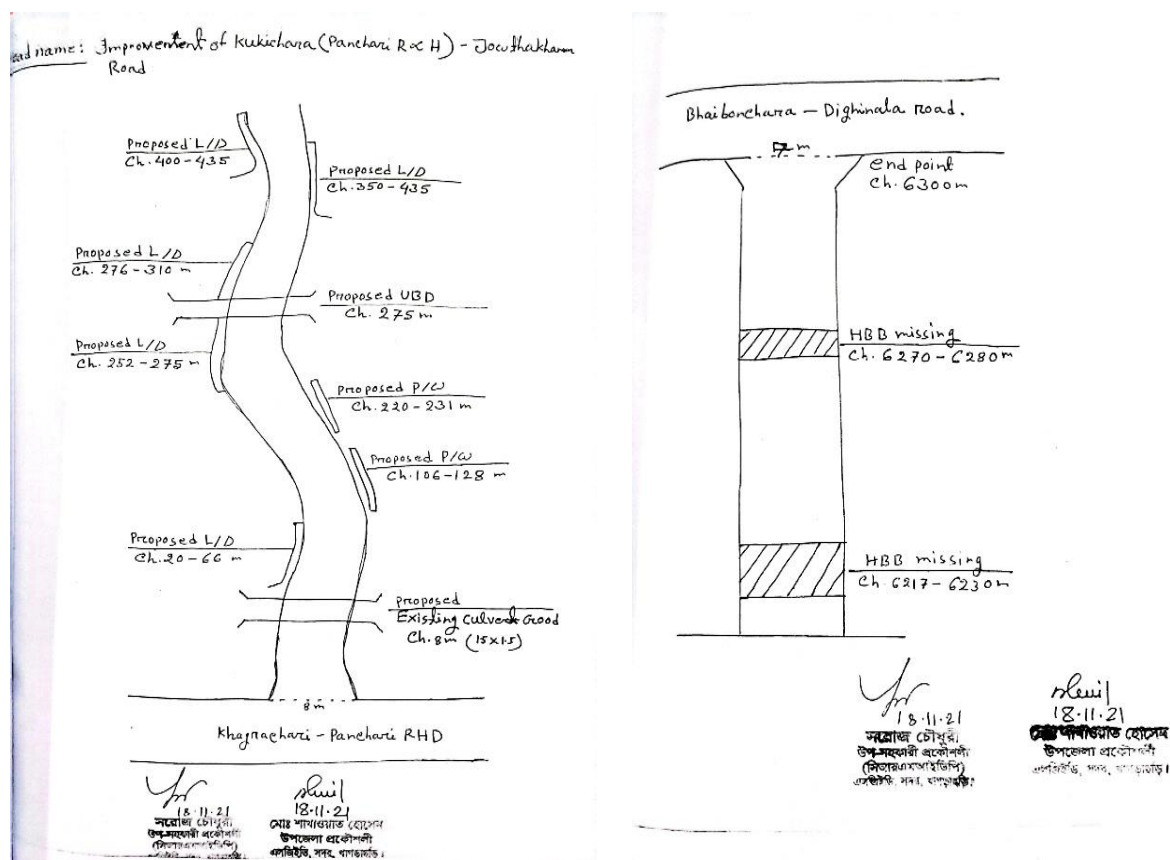 ad name: Improvement of Kukichara (Panchari R & H) -
Road
Proposed L/D
Ch. 400-435
Proposed L/D
Ch. 350-435
Proposed L/D
Ch. 276-310 m
Proposed UBD
Ch. 275 m
Proposed L/D
Ch. 252-275 m
Proposed P/W
Ch. 220-231 m
Proposed P/W
Ch. 106-128 m
Proposed L/D
Ch. 20-66 m
Proposed
Existing Culvert Good
Ch. 8m (15x1.5)
8 m
Khagrachari - Panchari RHD
18.11.21
সরোজ চৌধুরী
উপ-সহকারী প্রকৌশলী
18.11.21
মোঃ শাখাওয়াত হোসেন
উপজেলা প্রকৌশলী
এলজিইডি, সদর, খাগড়াছড়ি।
Bhaibonchara - Dighinala road.
7 m
end point
Ch. 6300m
HBB missing
Ch. 6270-6280m
HBB missing
Ch. 6217-6230m
18.11.21
সরোজ চৌধুরী
উপ-সহকারী প্রকৌশলী
(সিআরএমআইডিপি)
এলজিইডি, সদর, খাগড়াছড়ি।
18.11.21
শাখাওয়াত হোসেন
উপজেলা প্রকৌশলী
এলজিইডি, সদর, খাগড়াছড়ি।